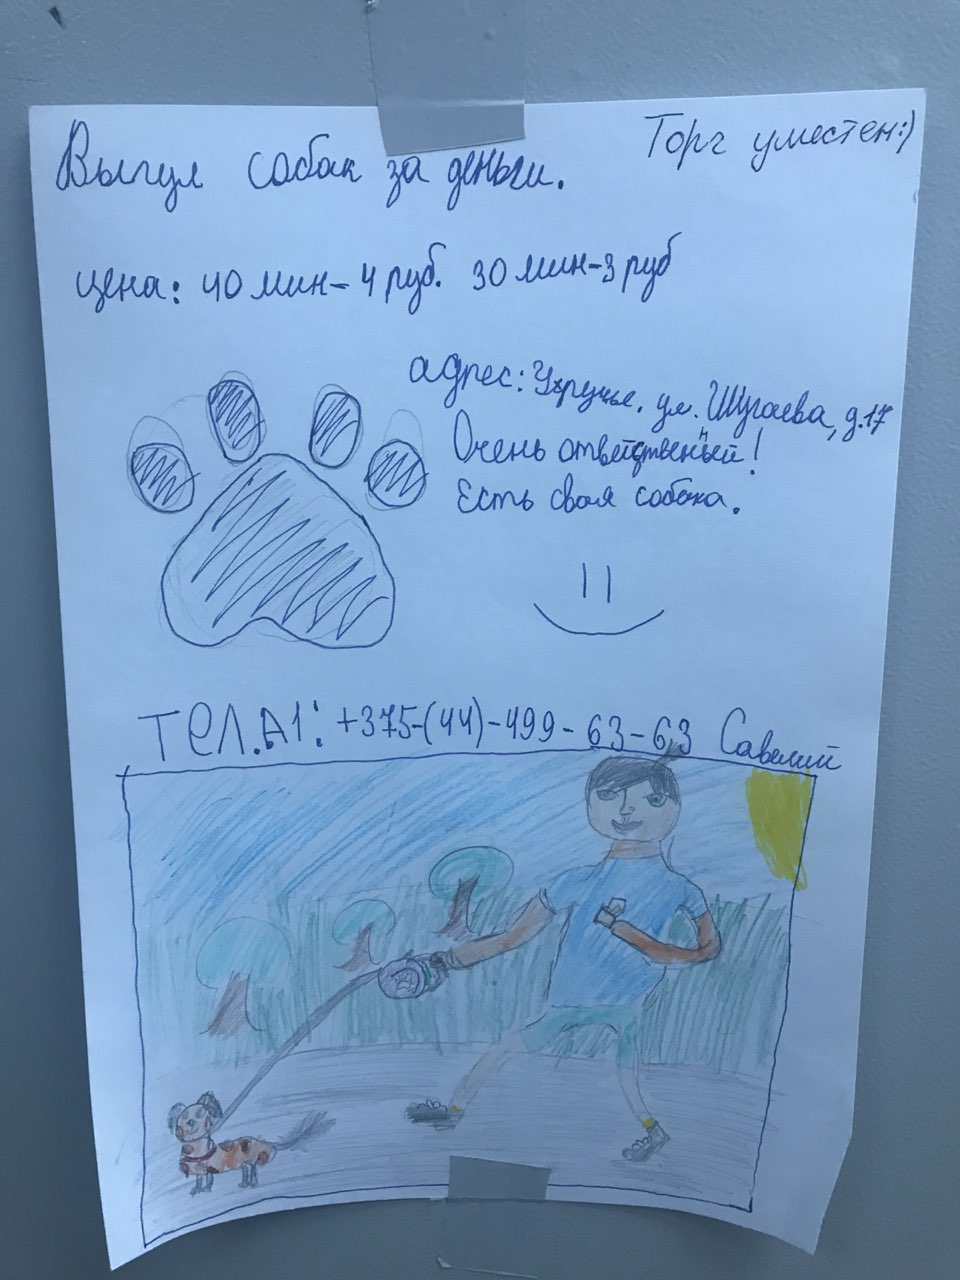 Выгул собак за деньги.
Торг уместен:)
цена: 40 мин-4 руб. 30 мин-3 руб
адрес: Уручье, ул. Шугаева, д.17
Очень ответственный!
Есть своя собака.
ТЕЛ.А1: +375-(44)-499-63-63 Савелий